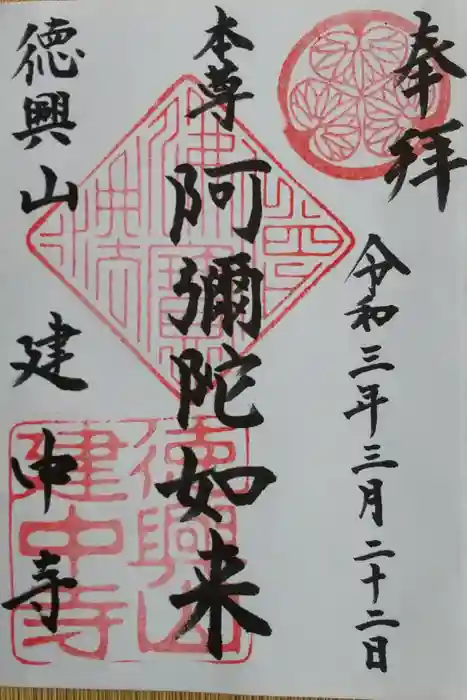 奉拝
令和三年三月二十二日
本尊 阿彌陀如来
德興山 建中寺
德興山
建中寺